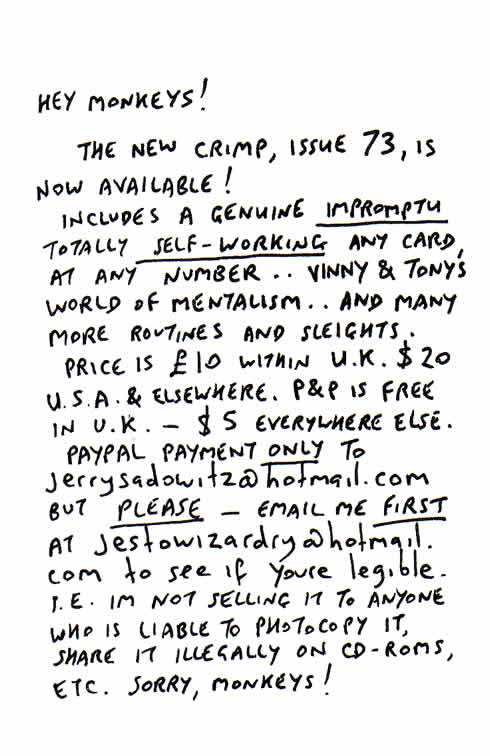 HEY MONKEYS!
THE NEW CRIMP, ISSUE 73, IS
NOW AVAILABLE!
INCLUDES A GENUINE IMPROMPTU
TOTALLY SELF-WORKING ANY CARD,
AT ANY NUMBER .. VINNY & TONY'S
WORLD OF MENTALISM .. AND MANY
MORE ROUTINES AND SLEIGHTS.
PRICE IS £10 WITHIN U.K. $20
U.S.A. & ELSEWHERE. P&P IS FREE
IN U.K. – $5 EVERYWHERE ELSE.
PAYPAL PAYMENT ONLY TO
jerrysadowitz@hotmail.com
BUT PLEASE – EMAIL ME FIRST
AT jestowizardry@hotmail.
com to see if youre legible.
I.E. IM NOT SELLING IT TO ANYONE
WHO IS LIABLE TO PHOTOCOPY IT,
SHARE IT ILLEGALLY ON CD-ROMS,
ETC. SORRY, MONKEYS!